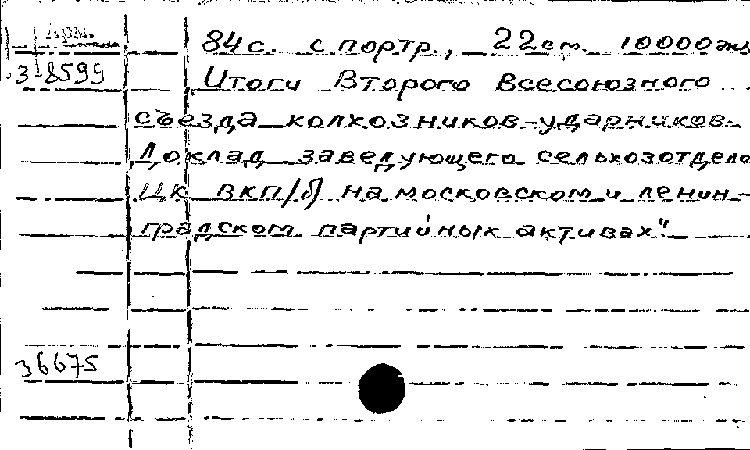 84 с. с портр., 22 см. 10000 экз
3-8599
Итоги Второго Всесоюзного
съезда колхозников-ударников.
Доклад заведующего сельхозотдело
ЦК ВКП/б/ на московском и ленин-
градском партийных активах".
36675